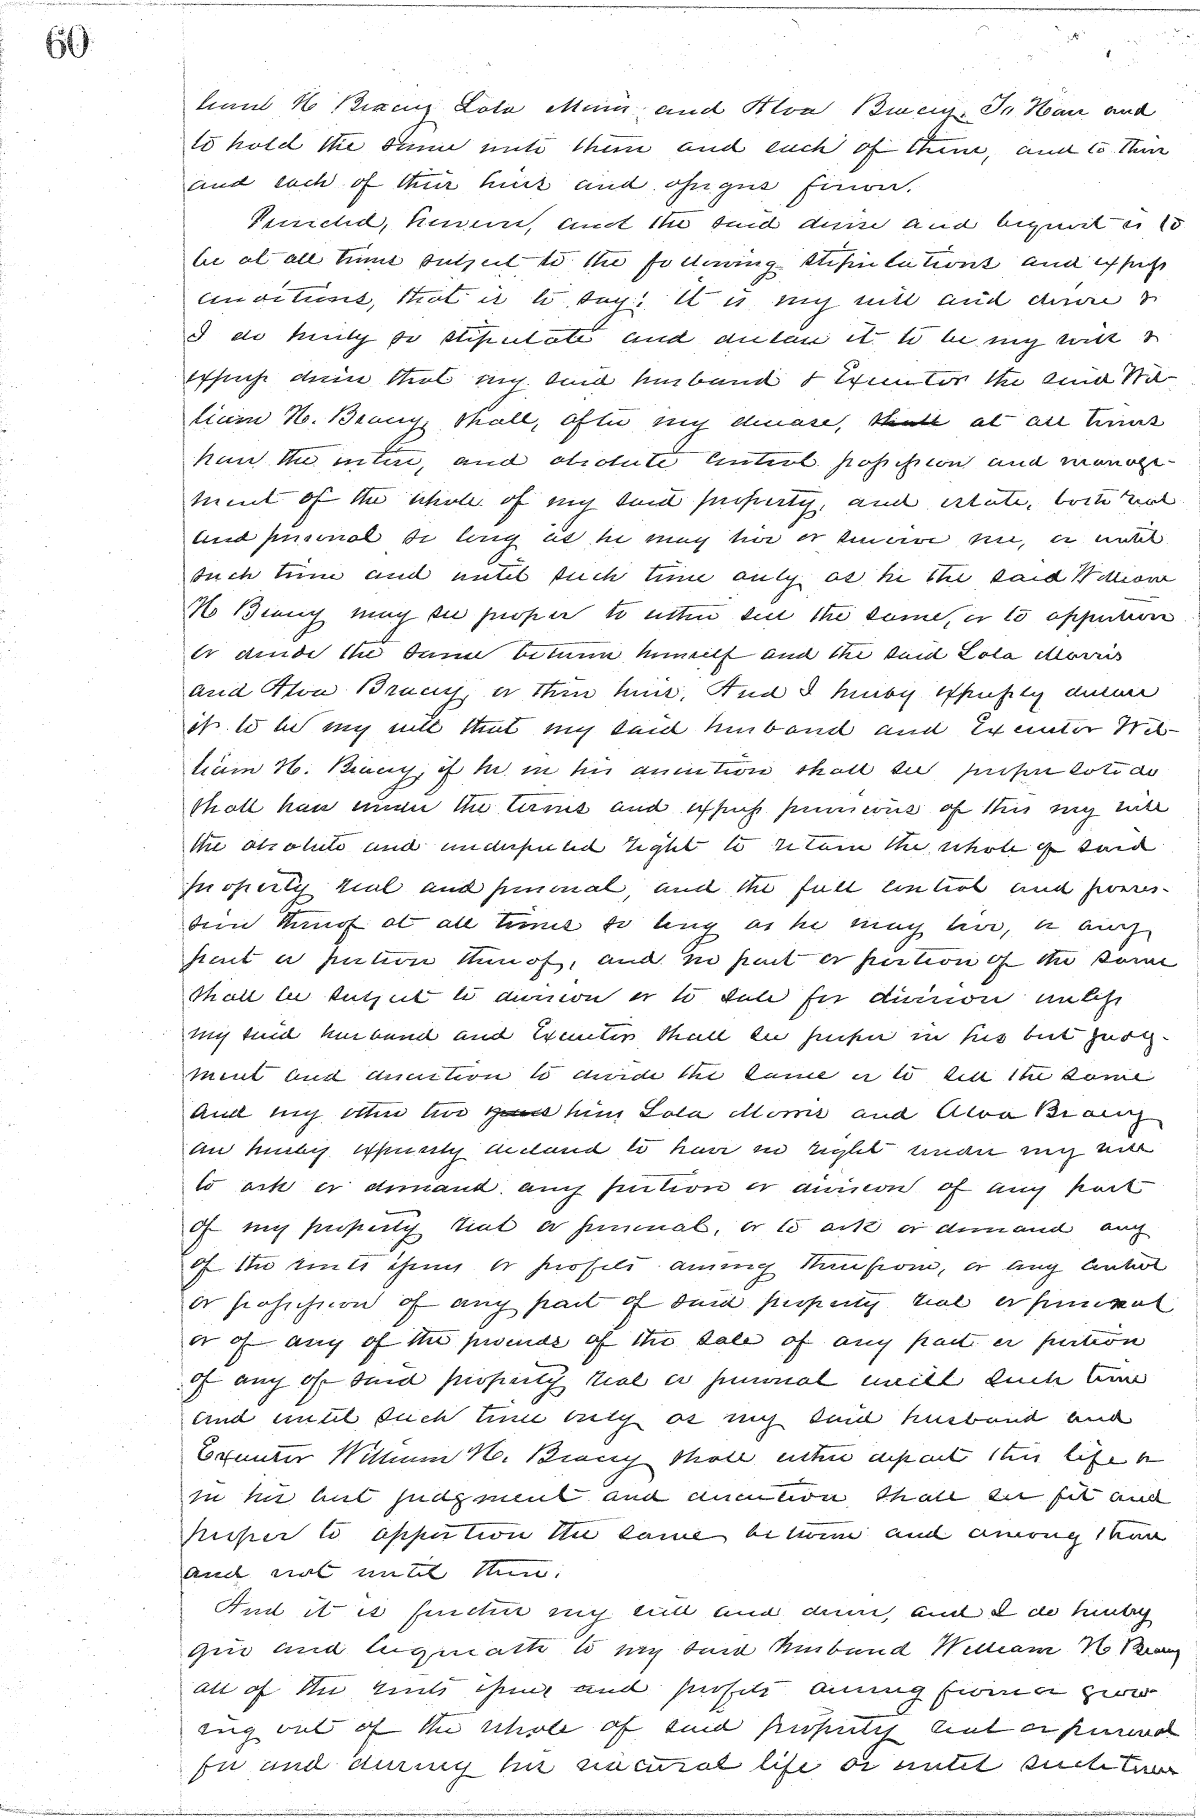 60
liam H Bracey Lola Morris, and Alva Bracey. To Have and
to hold the same unto them and each of them, and to their
and each of their heirs and assigns forever.
Provided, however, and the said devise and bequest is to
be at all times subject to the following stipulations and express
conditions, that is to say: It is my will and desire &
I do hereby so stipulate and declare it to be my will &
express desire that my said husband & Executor the said Wil-
liam H. Bracey, shall, after my decease, shall at all times
have the entire, and absolute control possession and manage-
ment of the whole of my said property, and estate, both real
and personal so long as he may live or survive me, or until
such time and until such time only as he the said William
H Bracey may see proper to either sell the same, or to apportion
or divide the same between himself and the said Lola Morris
and Alva Bracey, or their heirs. And I hereby expressly declare
it to be my will that my said husband and Executor Wil-
liam H. Bracey, if he in his discretion shall see proper so to do
shall have under the terms and express provisions of this my will
the absolute and undisputed right to retain the whole of said
property real and personal, and the full control and posses-
sion thereof at all times so long as he may live, or any
part or portion thereof, and no part or portion of the same
shall be subject to division or to sale for division unless
my said husband and Executor shall see proper in his best judg-
ment and discretion to divide the same or to sell the same
and my other two heirs Lola Morris and Alva Bracey
are hereby expressly declared to have no right under my will
to ask or demand any portion or division of any part
of my property real or personal, or to ask or demand any
of the rents issues or profits arising therefrom, or any control
or possession of any part of said property real or personal
or of any of the proceeds of the sale of any part or portion
of any of said property real or personal until such time
and until such time only as my said husband and
Executor William H. Bracey shall either depart this life or
in his best judgment and discretion shall see fit and
proper to apportion the same between and among them
and not until then.
And it is further my will and desire, and I do hereby
give and bequeath to my said husband William H Bracey
all of the rents issues and profits arising from or grow-
ing out of the whole of said property real or personal
for and during his natural life or until such time